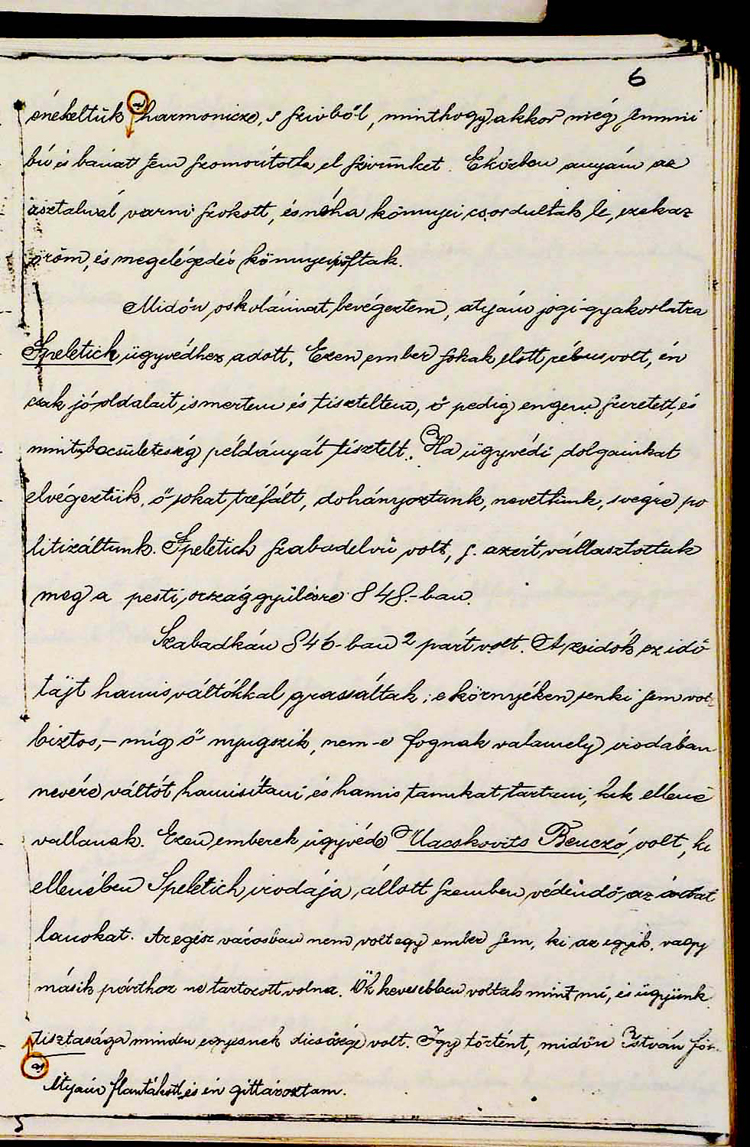 6
énekeltük a) harmonicze, s szivből, minthogy akkor még semmi
bú és bánat sem szomorította el szivünket. Eközben anyám az
asztalnál varrni szokott, és néha könnyei csordultak le, ezek az
öröm, és megelégedés könnyei voltak.
Midőn oskoláimat bevégeztem, atyám jogi-gyakorlatra
Speletich ügyvédhez adott. Ezen ember sokak előtt rébus volt, én
csak jó oldalait ismertem és tiszteltem, ő pedig engem szeretett, és
mint becsületesség példányát tisztelt. Ha ügyvédi dolgainkat
elvégeztük, ő sokat tréfált, dohányoztunk, nevettünk, s végre po
litizáltunk. Speletich szabadelvü volt, s azért választottuk
meg a pesti országgyülésre 848.-ban.
Szabadkán 846-ban 2 párt volt. A zsidók ez idő
tájt hamis váltókkal grassáltak; e környéken senki sem volt
biztos, – míg ő nyugszik, nem-e fognak valamely irodában
nevére váltót hamisítani és hamis tanukat tartani, kik ellene
vallanak. Ezen emberek ügyvéde Vacskovits Benczó volt, ki
ellenében Speletich irodája állott szemben védendő az ártat
lanokat. Az egész városban nem volt egy ember sem, ki az egyik, vagy
másik párthoz ne tartozott volna. Ők kevesebben voltak mint mi, és ügyünk
tisztasága minden egyesnek dicsősége volt. Igy történt, midőn István főh-
a) Atyám flautázott és én gittároztam.